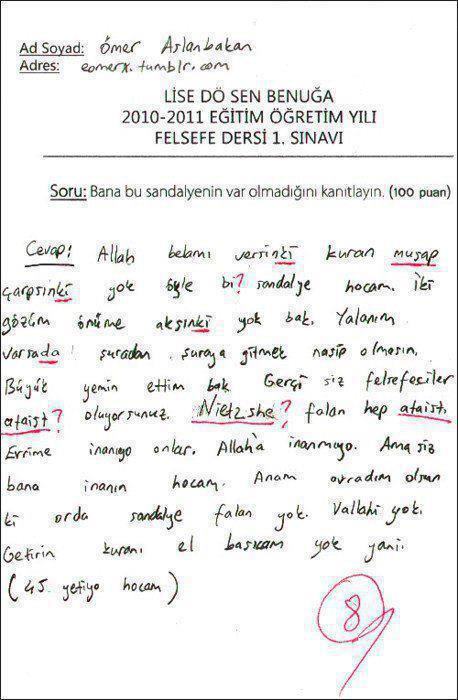 Ad Soyad: Ömer Aslanbakan
Adres: eomerx.tumblr.com
LİSE DÖ SEN BENUĞA
2010-2011 EĞİTİM ÖĞRETİM YILI
FELSEFE DERSİ 1. SINAVI
Soru: Bana bu sandalyenin var olmadığını kanıtlayın. (100 puan)
Cevap: Allah belamı versinki kuran muşap
çarpsınki yok öyle bi? sandalye hocam. İki
gözüm önüme aksınki yok bak. Yalanım
varsada şuradan şuraya gitmek nasip olmasın.
Büyük yemin ettim bak. Gerçi siz felsefeciler
ataist? oluyorsunuz. Nietzshe? falan hep ataist.
Evrime inanıyo onlar. Allah'a inanmıyo. Ama siz
bana inanın hocam. Anam avradım olsun
ki orda sandalye falan yok. Vallahi yok.
Getirin kuranı el basıcam yok yani.
(45 yetiyo hocam)
8